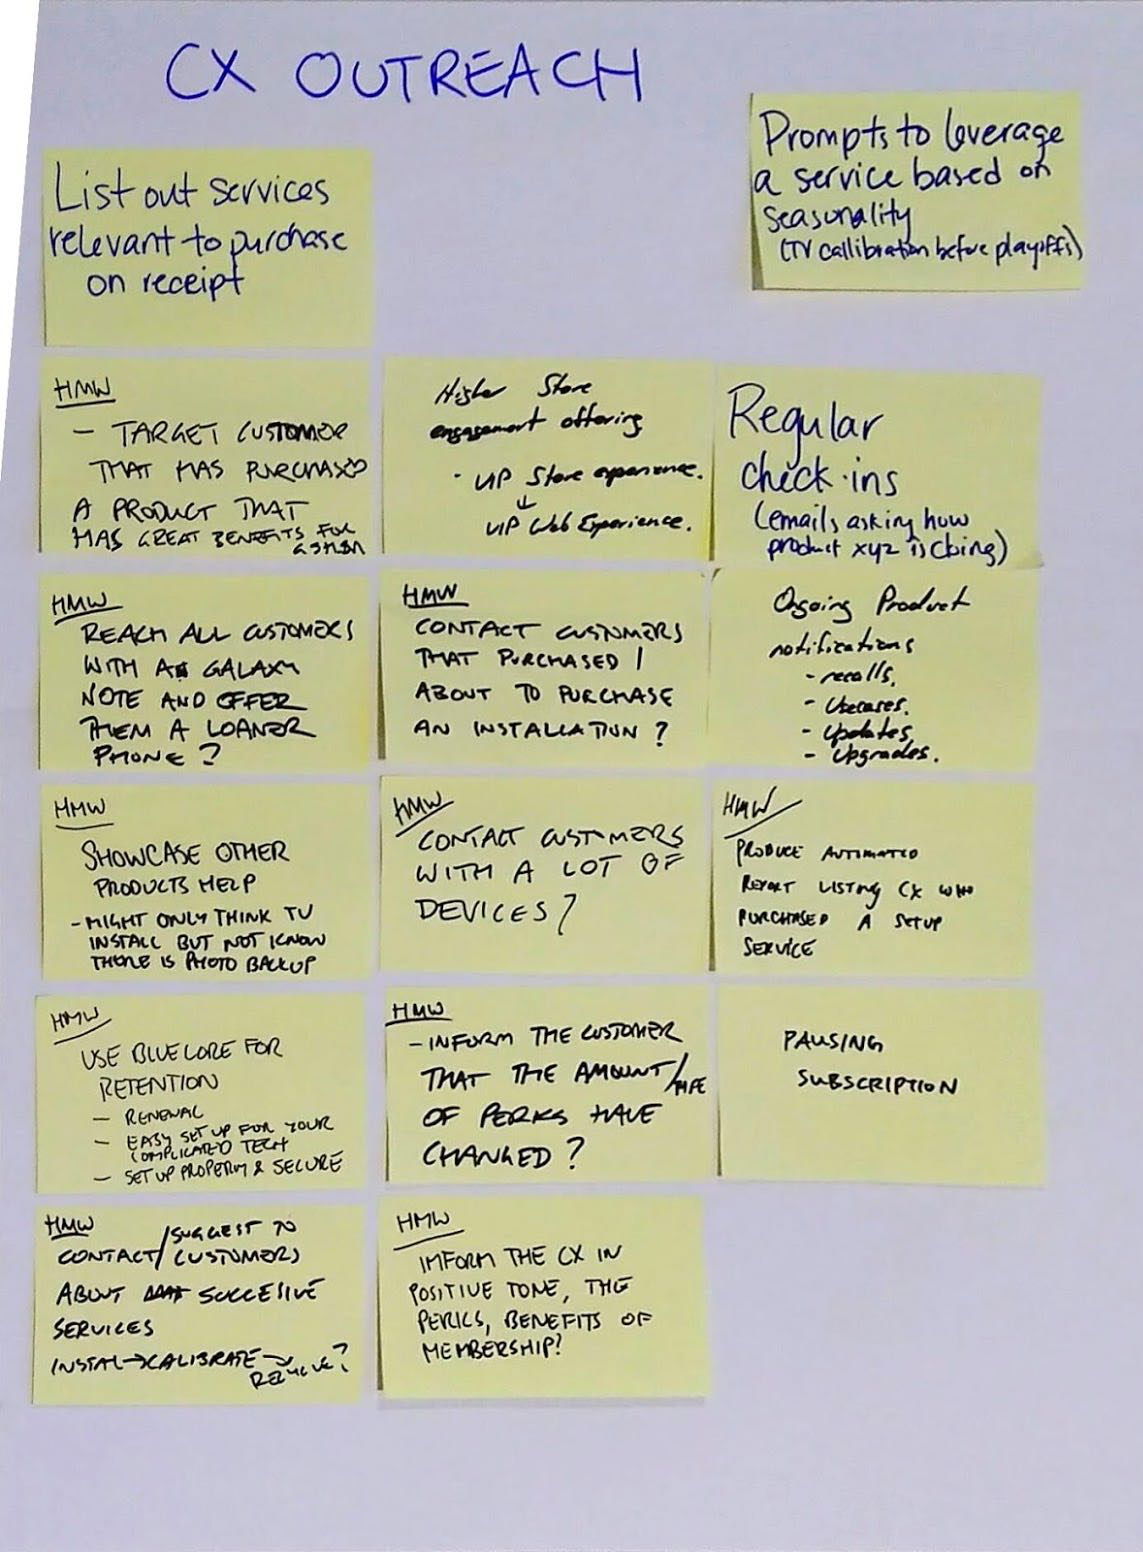 CX OUTREACH
List out services
relevant to purchase
on receipt
Prompts to leverage
a service based on
seasonality
(TV callibration before playoffs)
HMW
- TARGET CUSTOMER
THAT HAS PURCHASED
A PRODUCT THAT
HAS GREAT BENEFITS FOR
Higher Store
engagement offering
- VIP Store experience.
↓
VIP Web Experience.
Regular
check-ins
(emails asking how
product xyz is doing)
HMW
REACH ALL CUSTOMERS
WITH A GALAXY
NOTE AND OFFER
THEM A LOANER
PHONE?
HMW
CONTACT CUSTOMERS
THAT PURCHASED /
ABOUT TO PURCHASE
AN INSTALLATION?
Ongoing Product
notifications
- recalls.
- Usecases.
- Updates,
- Upgrades.
HMW
SHOWCASE OTHER
PRODUCTS HELP
- MIGHT ONLY THINK TV
INSTALL BUT NOT KNOW
THERE IS PHOTO BACKUP
HMW
CONTACT CUSTOMERS
WITH A LOT OF
DEVICES?
HMW
PRODUCE AUTOMATED
REPORT LISTING CX WHO
PURCHASED A SETUP
SERVICE
HMW
USE BLUECORE FOR
RETENTION
- RENEWAL
- EASY SET UP FOR YOUR
COMPLICATED TECH
- SET UP PROPERLY & SECURE
HMW
- INFORM THE CUSTOMER
THAT THE AMOUNT/TYPE
OF PERKS HAVE
CHANGED?
PAUSING
SUBSCRIPTION
HMW
CONTACT/SUGGEST TO
CUSTOMERS
ABOUT SUCCESIVE
SERVICES
INSTAL→CALIBRATE→
HMW
IMFORM THE CX IN
POSITIVE TONE, THE
PERKS, BENEFITS OF
MEMBERSHIP?